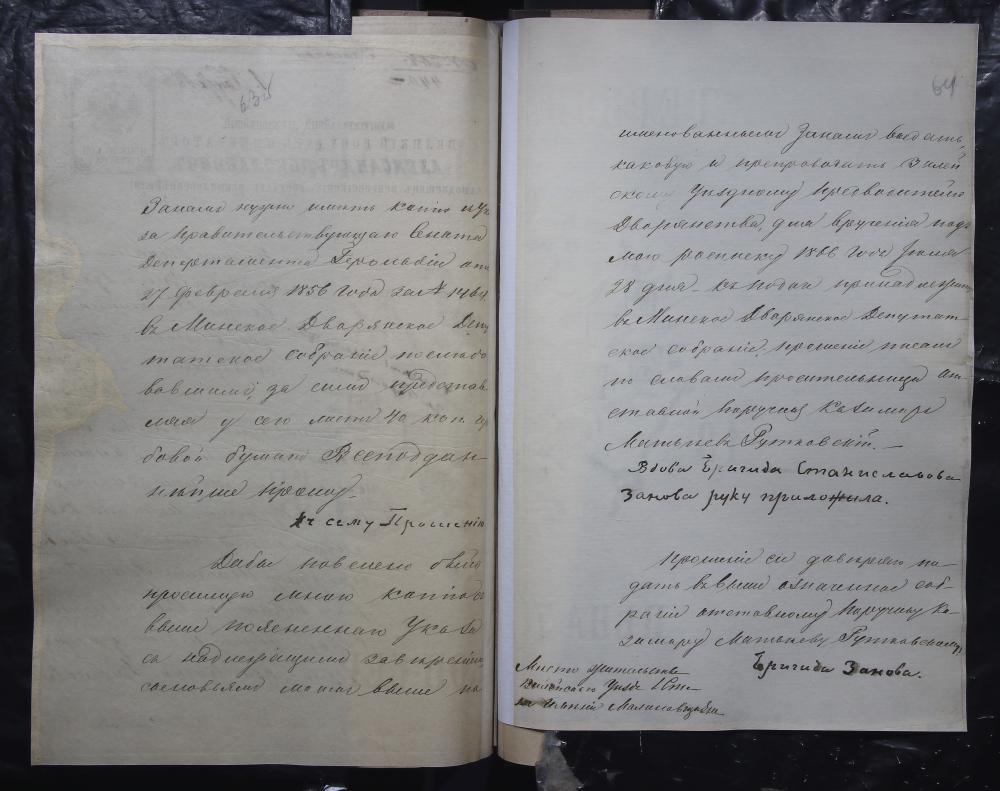 63
Занами нужно иметь копію изъ Ука
за Правительствующаго Сената
Департамента Герольдіи отъ
27 февраля 1856 года за №
въ Минское Дворянское Депу
татское собраніе последо
вавшими, за симъ представ
ляя у сего листъ 40 коп. гер
бовой бумаги Всеподдан-
нѣйше прошу.
Къ сему Прошенію
Дабы повелено было
просимую мною копію съ
выше поясненнаго Указа
съ надлежащимъ завереніем
сыновьями моими выше по
64
именованными Занами выдать,
каковую и препроводить Вилей
скому Уездному Предводителю
Дворянства, для врученія подъ
мою росписку 1866 года Іюня
28 дня. Къ подаче принадлежит
въ Минское Дворянское Депутат-
ское собраніе, прошеніе писалъ
по словамъ просительницы от-
ставной Поручикъ Казимиръ
Матвѣевъ Рутковскій.
Вдова Бригида Станиславова
Занова руку приложила.
Прошеніе сіе доверяю по-
дать въ выше означенное соб-
раніе отставному Поручику Ка-
зимиру Матвѣеву Рутковскому
Бригида Занова.
Место жительства
Вилейскаго Уезда
въ именіи Малиновщизна